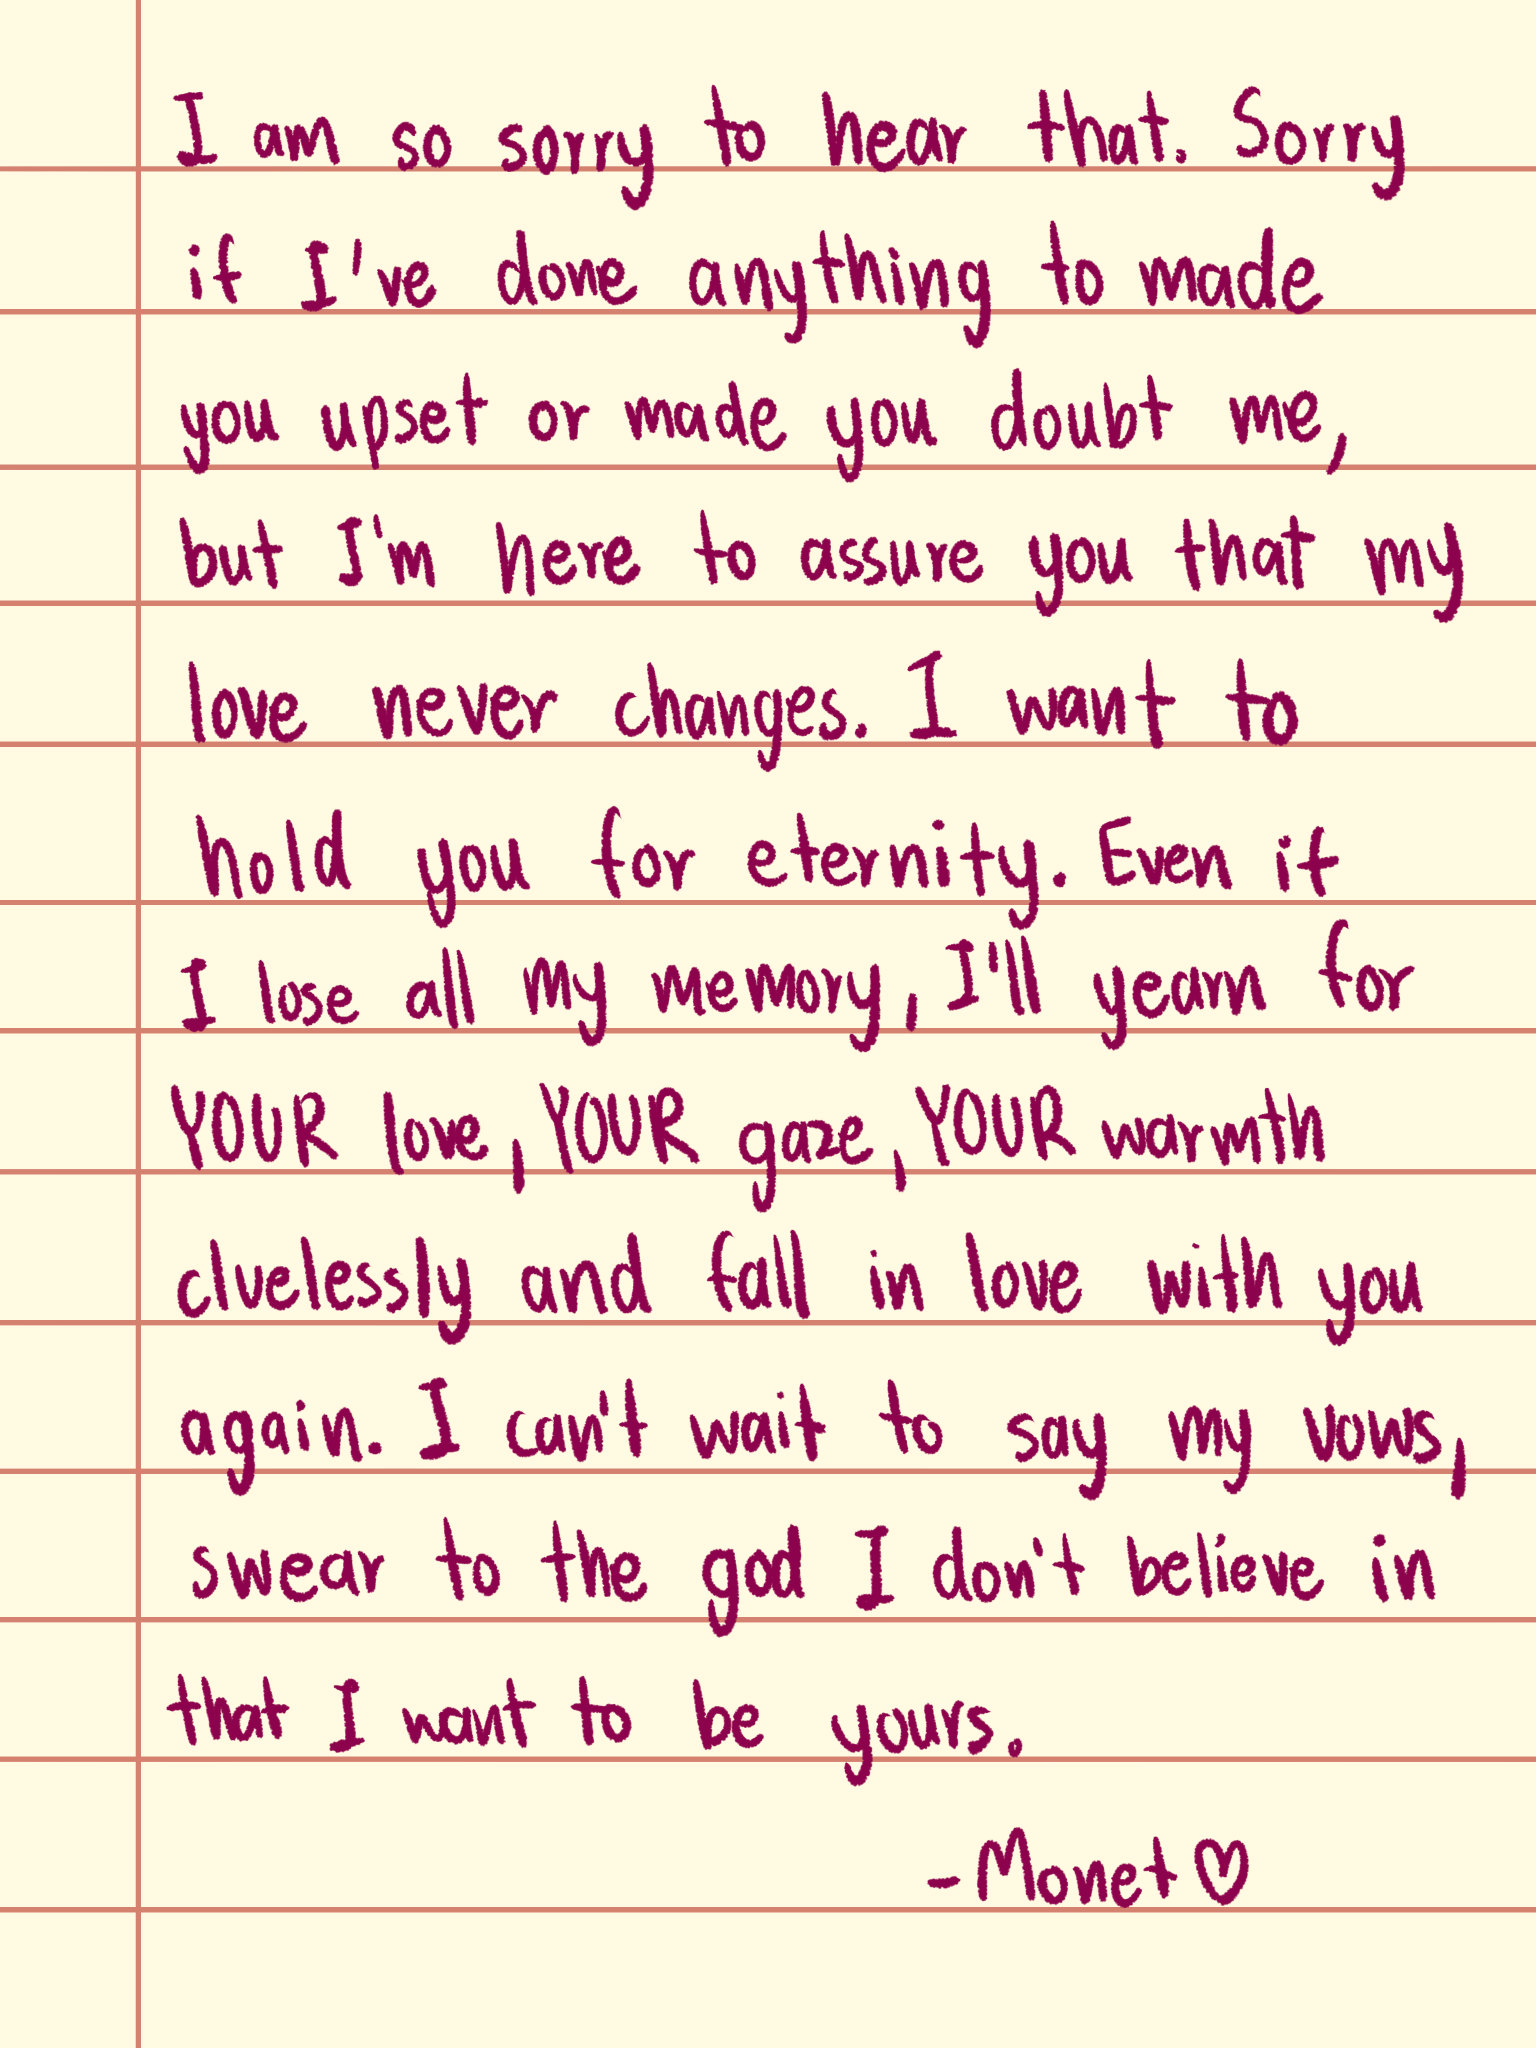 I am so sorry to hear that. Sorry
if I've done anything to made
you upset or made you doubt me,
but I'm here to assure you that my
love never changes. I want to
hold you for eternity. Even if
I lose all my memory, I'll yearn for
YOUR love, YOUR gaze, YOUR warmth
cluelessly and fall in love with you
again. I can't wait to say my vows,
swear to the god I don't believe in
that I want to be yours.
-Monet♡